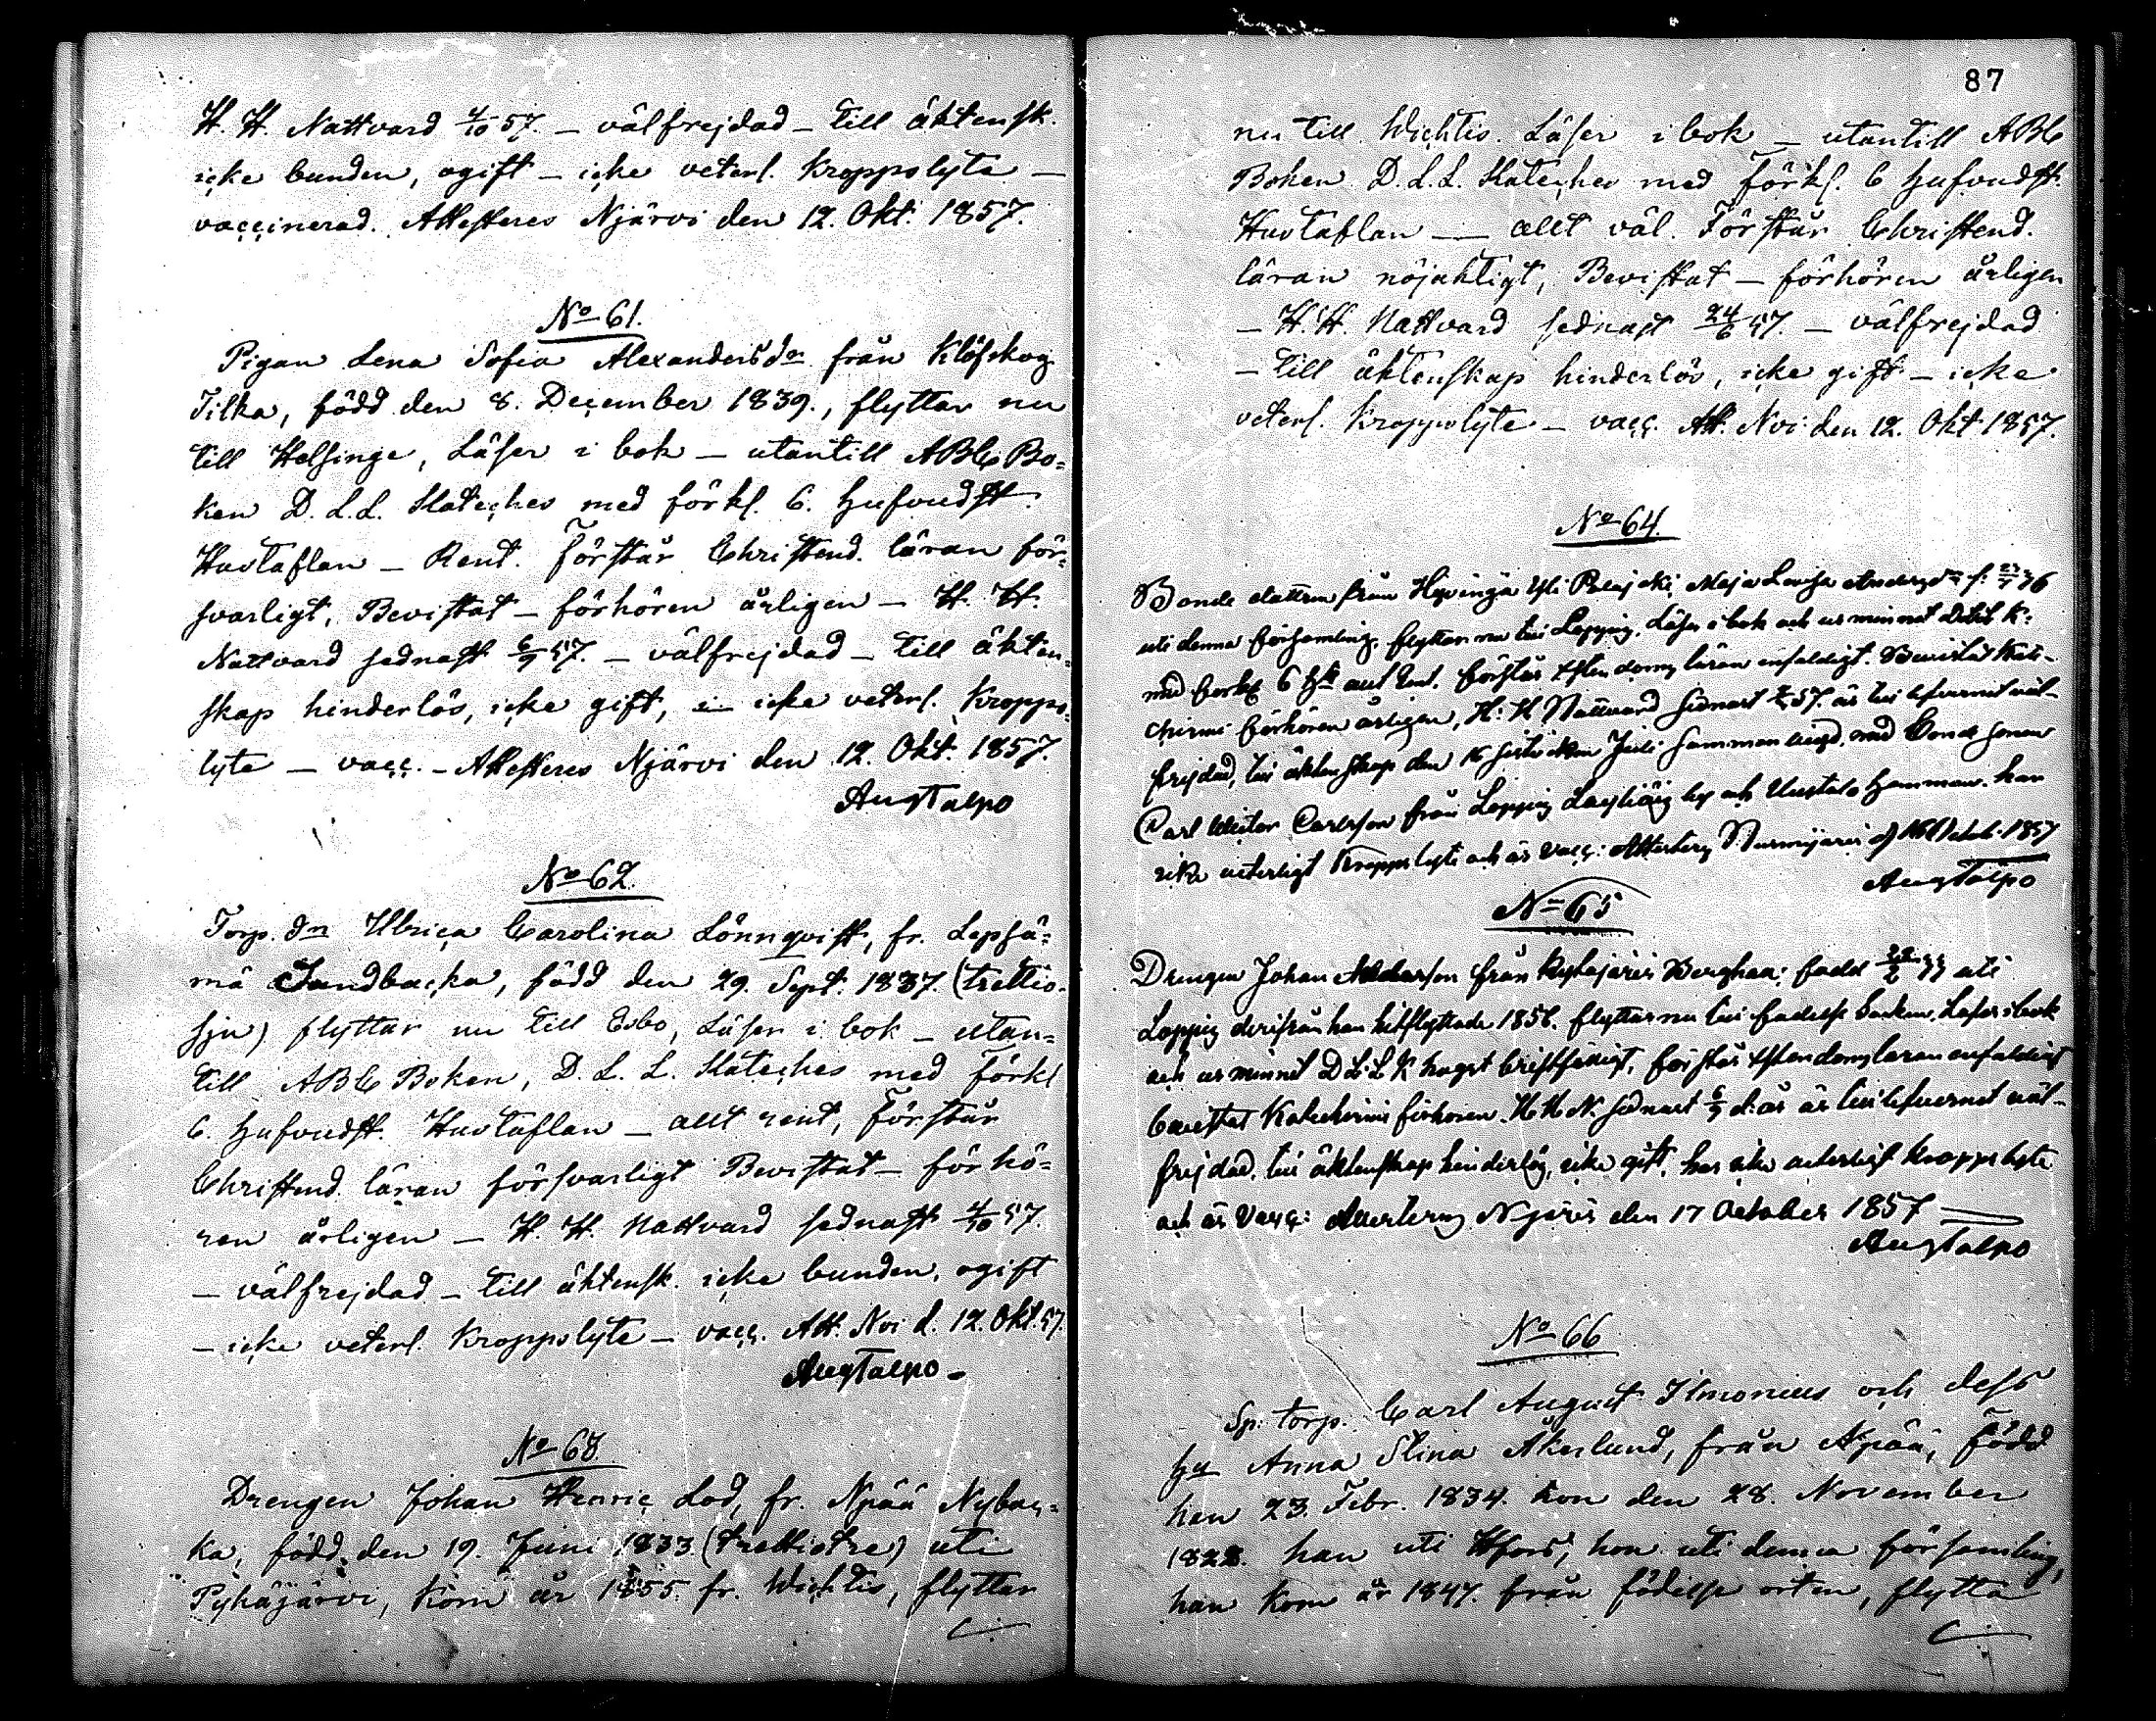 H. H. Nattvard 4/10 57. – välfrejdad – till äktensk.
icke bunden, ogift – icke veterl. Kroppslyte –
vaccinerad. Attesteres Njärvi den 12. Okt. 1857.
No 61.
Pigan Lena Sofia Alexandersdr från Klöfskog
Tilka, född den 8. December 1839., flyttar nu
till Helsinge, Läser i bok – utantill ABC Bo=
ken D. L. L. Kateches med förkl. 6. Hufvudst.
Hustaflan – Rent. Förstår Christend. läran för=
svarligt, Bevistat – förhören årligen – H. H.
Nattvard sednast 6/9 57. – välfrejdad – till äkten=
skap hinderlös, icke gift, icke veterl. Kropps=
lyte – vacc. – Attesteres Njärvi den 12. Okt. 1857.
Aug Talpo
No 62.
Torp. dn Ulrica Carolina Lönnqvist, fr. Lepsä=
mä Sandbacka, född den 29. Sept. 1837. (trettio=
sju) flyttar nu till Esbo, Läser i bok – utan=
till ABC Boken, D. L. L. Kateches med förkl
6. Hufvudst. Hustaflan – allt rent, Förstår
Christend. läran försvarligt Bevistat – förhö=
ren årligen – H. H. Nattvard sednast 4/10 57.
– välfrejdad – till äktensk. icke bunden, ogift
– icke veterl. Kroppslyte – vacc. Att. Nvi d. 12. Okt. 57.
Aug Talpo –
No 63.
Drengen Johan Henric Lod, fr. Npää Nybac=
ka, född den 19. Juni 1833. (trettiotre) uti
Pyhäjärvi, kom år 1855. fr. Wichtis, flyttar
87
nu till Wichtis. Läser i bok – utantill ABC
Boken D. L. L. Kateches med Förkl. 6 Hufvudst.
Hustaflan – allt väl. Förstår Christend.
läran nöjaktigt, Bevistat – förhören årligen
– H. H. Nattvard sednast 24/6 57. – välfrejdad
– till äktenskap hinderlös, icke gift – icke
veterl. Kroppslyte – vacc. Att. Nvi den 12. Okt 1857.
No 64.
Bonde dottren från Hyvingä Maja Lovisa Andersdr f. 36
uti denna församling, flyttar nu till Loppis, Läser i bok och ur minnet K.
med förkl 6 förstår Xstendoms läran enfaldigt. Bevistat Kate-
chismi förhören årligen, H. H Nattvard sednast 57. är till lefvernet väl-
frejdad, till äktenskap den Juli sammanlyst med Bonde sonen
Carl Carlsson från Loppis by och hemman. har
icke veterligt Kroppslyte och är vacc: Attesteres Nurmijärvi d 16 Octob. 1857
Aug Talpo
No 65
Drengen Johan från Kytäjärvi Berghem: född 33 uti
Loppis derifrån han hitflyttade 1856. flyttar nu till födelse Socken. Läser i bok
och ur minnet D L: L K något bristfälligt, förstår Xstendoms läran enfaldigt
bevistat Katechismi förhören. H H N. sednast 6/9 d: år är till lefvernet väl-
frejdad, till äktenskap hinderlös, icke gift, har icke veterligt Kroppslyte
och är Vacc: Attesteres Njärvi den 17 October 1857
Aug Talpo
No 66
Sp: torp. Carl August Ilmonius och dess
hu Anna Stina Åkerlund, från Npää, född
han 23. Febr. 1834. hon den 28. November
1828. han uti Hfors, hon uti denna församling,
han kom år 1847. från födelse orten, flytta